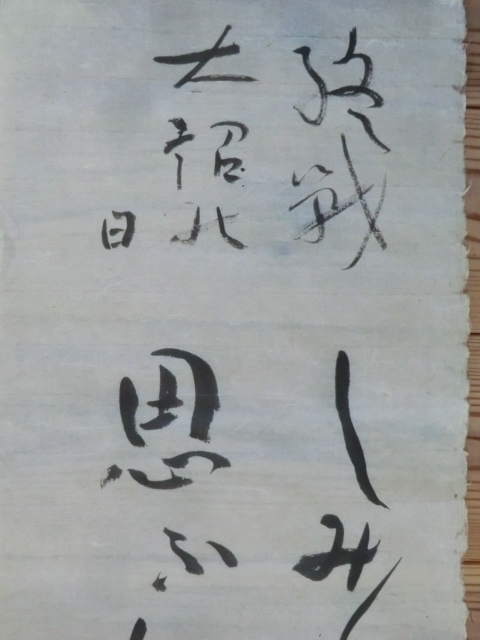 終戦
大詔
日
しみ
思ふ